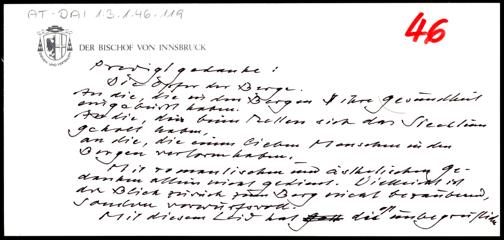 AT-DAI 1.3.1.46.119
46
DER BISCHOF VON INNSBRUCK
Predigtgedanke:
Die Opfer der Berge.
An die, die in den Bergen ihre Gesundheit
eingebüßt haben.
An die, die beim Retten sich das Siechtum
geholt haben,
an die, die einen lieben Menschen in den
Bergen verloren haben.
Mit romantischen und ästhetischen Ge-
danken allein nicht gedient. Vielleicht ist
der Blick zurück zum Berg nicht berauschend,
sondern vorwurfsvoll.
Mit diesem Leid hat die